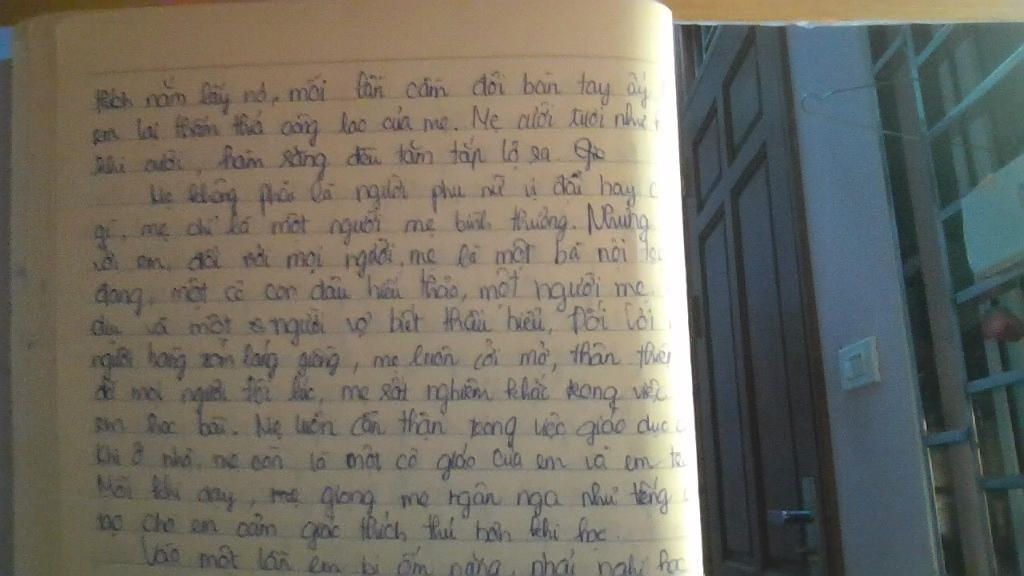 thích nắm lấy nó, mỗi lần cầm đôi bàn tay ấy
em lại thấm thía công lao của mẹ. Mẹ cười tươi như
khi cười, hàm răng đều tăm tắp lộ ra.
Mẹ không phải là người phụ nữ vĩ đại hay
gì, mẹ chỉ là một người mẹ bình thường. Nhưng
với em, đối với mọi người, mẹ là một bà nội
đang, một cô con dâu hiếu thảo, một người mẹ
dịu và một người vợ biết thấu hiểu, Đối với
người hàng xóm láng giềng, mẹ luôn cởi mở, thân thiện
để mọi người tới lúc, mẹ rất nghiêm khắc trong việc
em học bài. Mẹ luôn cẩn thận trong việc giáo dục
Khi ở nhà, mẹ còn là một cô giáo của em và em
Mỗi khi dạy, mẹ giọng mẹ ngân nga như tiếng
tạo cho em cảm giác thích thú hơn khi học.
Vào một lần em bị ốm nặng, phải nghỉ học